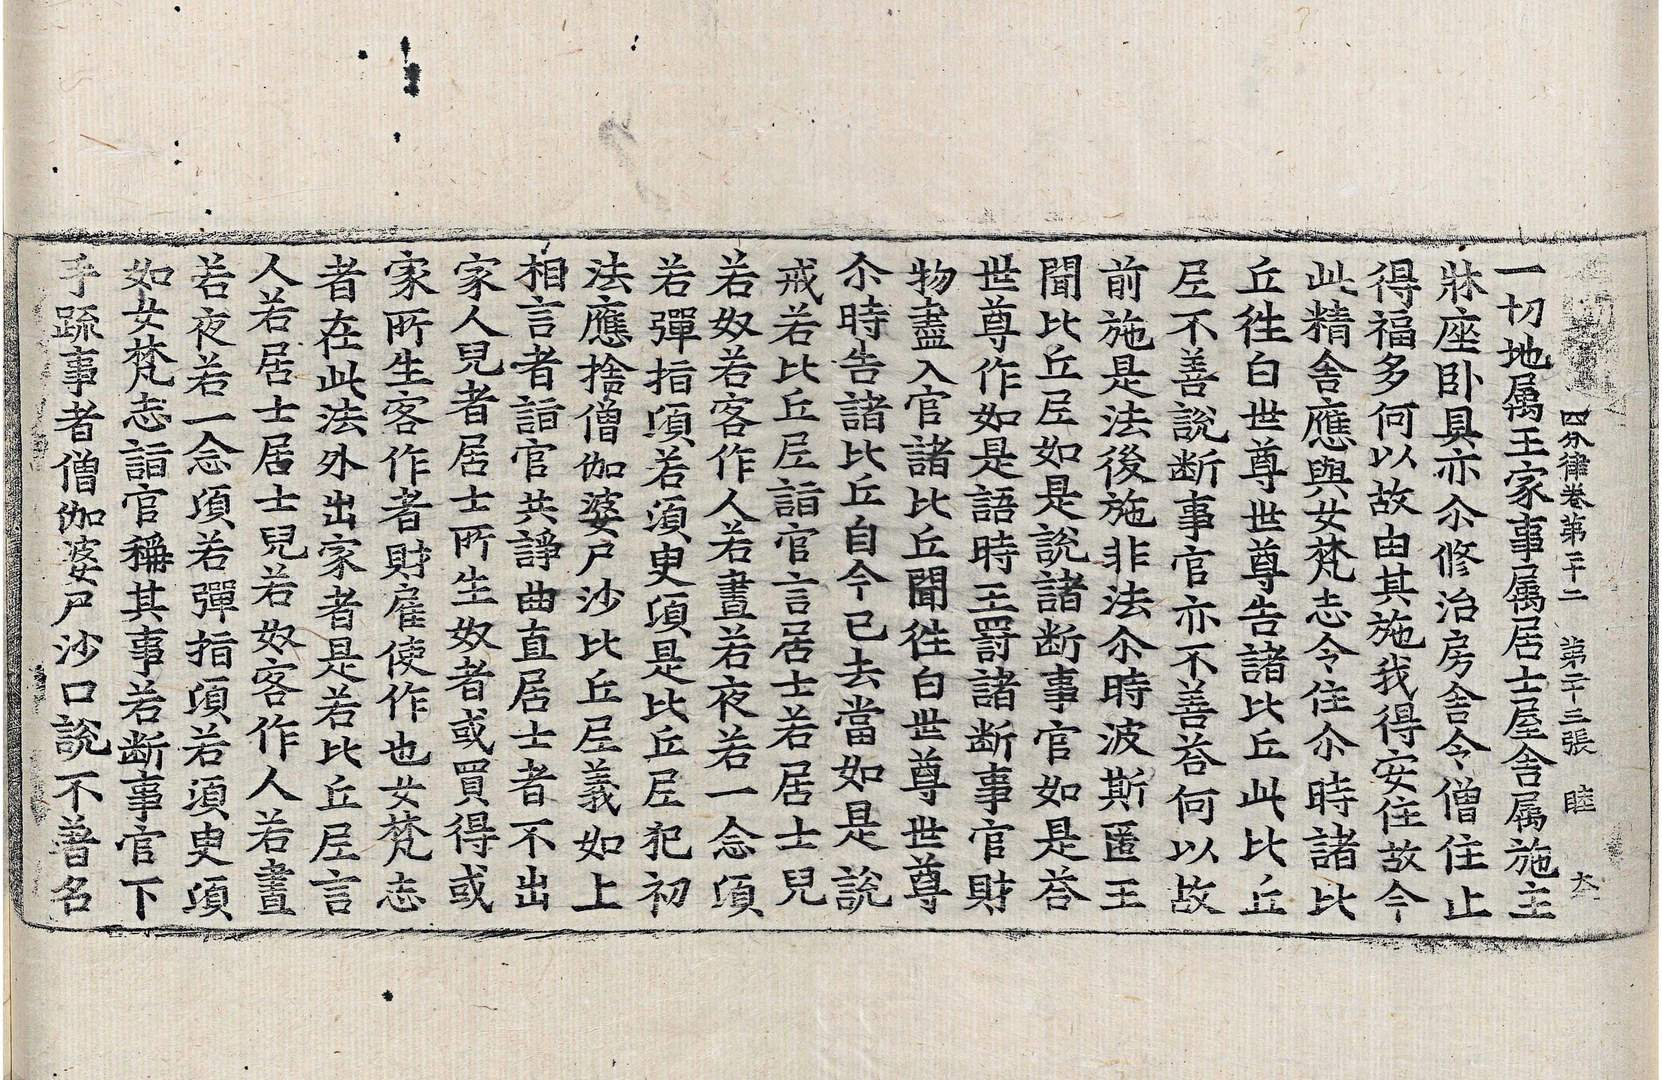 四分律卷第二十二 第二十三張 睦 大
一切地属王家事属居士屋舍属施主
牀座卧具亦尒修治房舍令僧住止
得福多何以故由其施我得安住故今
此精舍應與女梵志令住尒時諸比
丘徃白世尊世尊告諸比丘此比丘
𡰱不善說断事官亦不善荅何以故
前施是法後施非法尒時波斯匿王
聞比丘𡰱如是說諸断事官如是荅
世尊作如是語時王罸諸断事官財
物盡入官諸比丘聞徃白世尊世尊
尒時告諸比丘自今已去當如是說
戒若比丘𡰱詣官言居士若居士兒
若奴若客作人若晝若夜若一念湏
若彈指湏若湏臾湏是比丘𡰱犯初
法應捨僧伽婆尸沙比丘𡰱義如上
相言者詣官共諍曲直居士者不出
家人兒者居士所生奴者或買得或
家所生客作者財雇使作也女梵志
者在此法外出家者是若比丘𡰱言
人若居士居士兒若奴客作人若晝
若夜若一念湏若彈指湏若湏臾湏
如女梵志詣官稱其事若断事官下
手䟽事者僧伽婆尸沙口說不善名